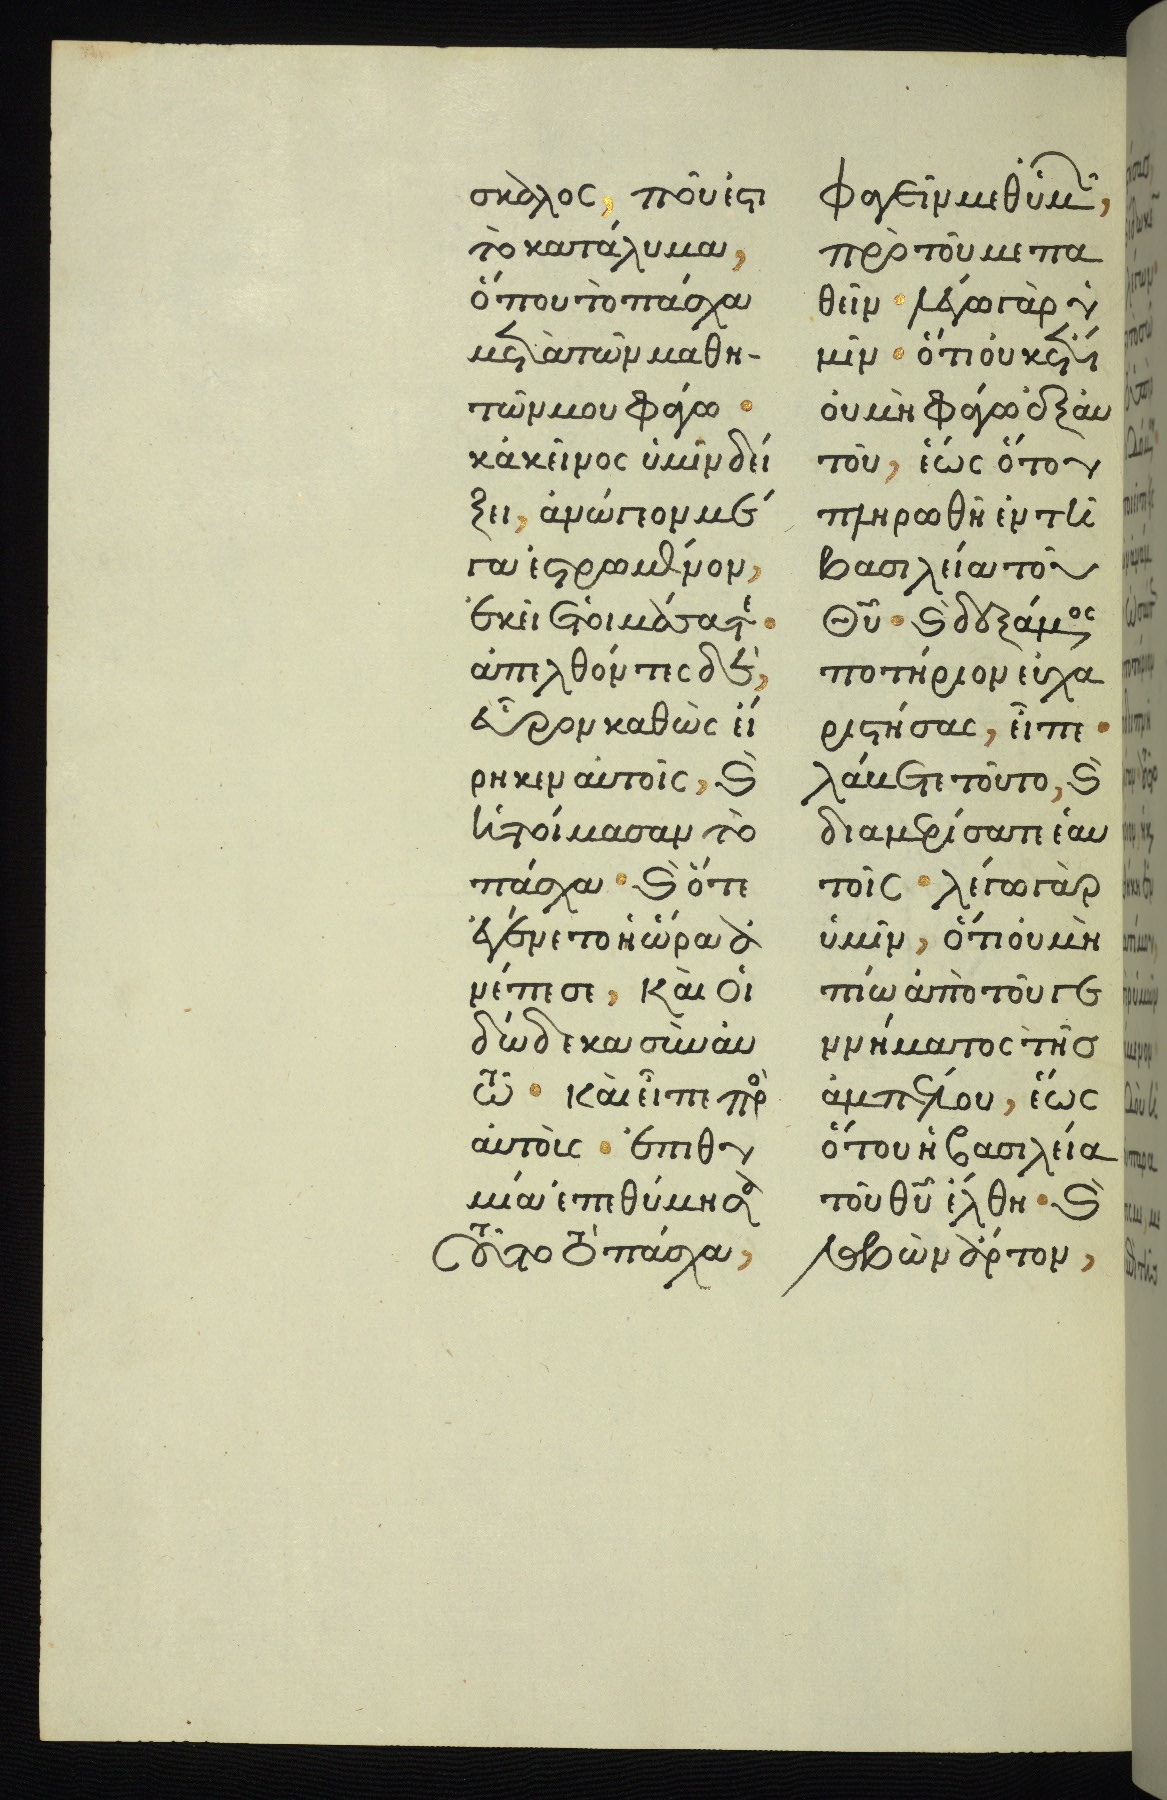 σκαλος, ποῦ ἐστι
τὸ κατάλυμα,
ὅπου τὸ πάσχα
μετὰ τῶν μαθη-
τῶν μου φάγω·
κἀκεῖνος ὑμῖν δεί
ξει, ἀνώγεον μέ
γα ἐστρωμένον,
ἐκεῖ ἑτοιμάσατε·
ἀπελθόντες δὲ,
εὗρον καθὼς εἴ
ρηκεν αὐτοῖς, ϗ
ἡτοίμασαν τὸ
πάσχα· ϗ ὅτε
ἐγένετο ἡ ὥρα ἀ
νέπεσε, καὶ οἱ
δώδεκα σὺν αὐ
τῶ· καὶ εἶπε πρὸ
αὐτοὺς· ἐπιθυ
μία ἐπεθύμησα
τοῦτο τὸ πάσχα,
φαγεῖν μεθ' ὑμῶν,
πρὸ τοῦ με πα
θεῖν· λέγω γὰρ ὑ
μῖν· ὅτι οὐκέτι
οὐ μὴ φάγω ἐξ αὐ
τοῦ, ἕως ὅτου
πληρωθῆ ἐν τῆ
βασιλεία τοῦ
Θῦ· ϗ δεξάμενος
ποτήριον εὐχα
ριστήσας, εἶπε·
λάβετε τοῦτο, ϗ
διαμερίσατε ἑαυ
τοῖς· λέγω γὰρ
ὑμῖν, ὅτι οὐ μὴ
πίω ἀπὸ τοῦ γε
ννήματος τῆς
ἀμπέλου, ἕως
ὅτου ἡ βασιλεία
τοῦ θῦ ἔλθη· ϗ
λαβὼν ἄρτον,